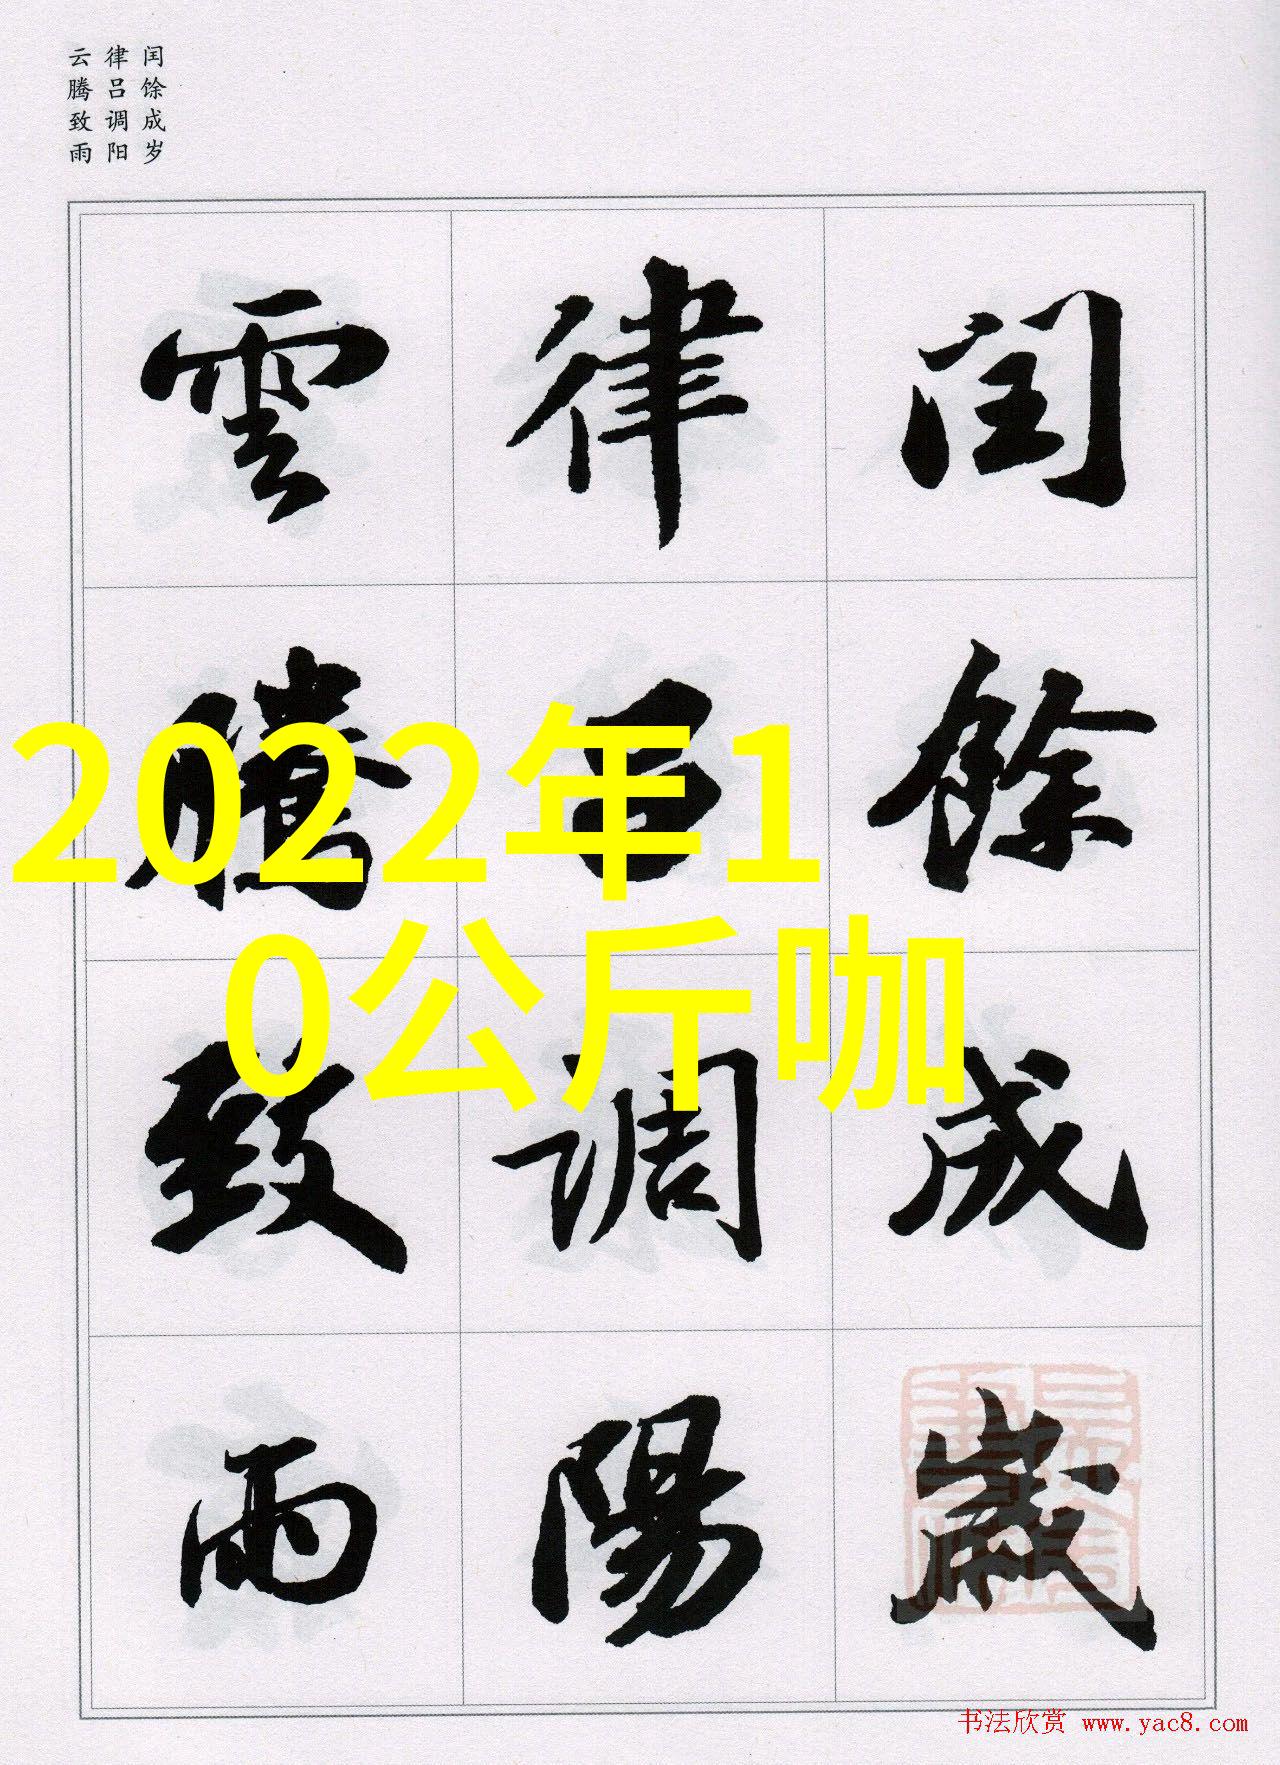 闰馀成岁
律吕调阳
云腾致雨
閏餘成歲
律呂調陽
雲騰致雨
2022年1
0公斤咖
书法欣赏 www.yac8.com